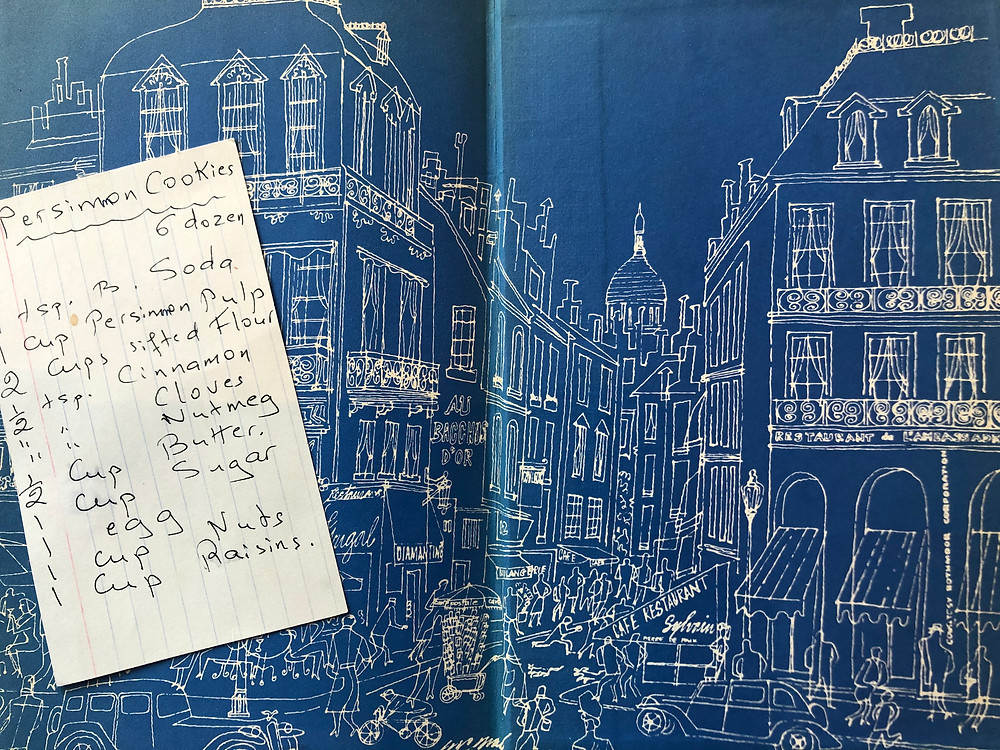 Persimmon Cookies
6 dozen
1 tsp. B. Soda
1 Cup Persimmon Pulp
2 Cups sifted Flour
½ tsp. Cinnamon
" " Cloves
" " Nutmeg
½ Cup Butter.
1 Cup Sugar
1 egg
1 Cup Nuts
1 Cup Raisins.
AU
BACCHUS
D'OR
Restaurant
DIAMANTINE
CAFE
CAFE RESTAURANT
Sylvain
RESTAURANT de L'AMBASSADE
COURTESY ROTHMOOR CORPORATION